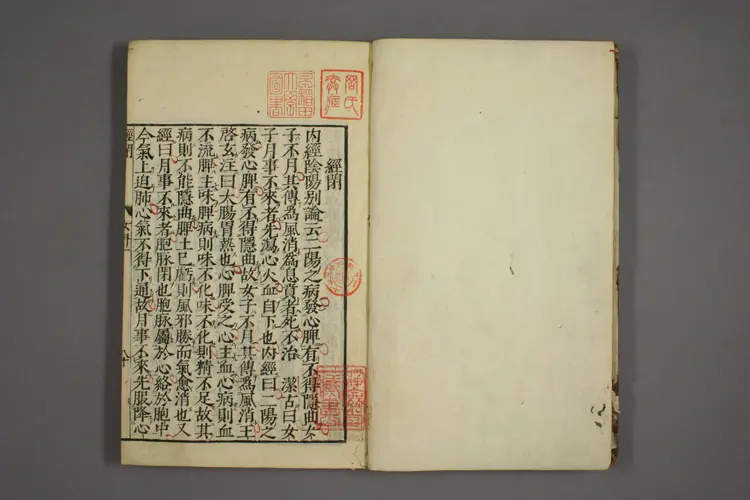 經閉
內經陰陽别論云二陽之病發心脾有不得隱曲女
子不月其傳為風消為息賁者死不治 潔古曰女
子月事不來者先瀉心火血自下也內經曰二陽之
病發心脾有不得隱曲故女子不月其傳為風消王
啓玄注曰大腸胃熱也心脾受之心主血心病則血
不流脾主味脾病則味不化味不化則精不足故其
病則不能隱曲脾土已虧則風邪勝而氣愈消也又
經曰月事不來者胞脉閉也胞脉屬於心絡於胞中
今氣上迫肺心氣不得下通故月事不來先服降心
經閉